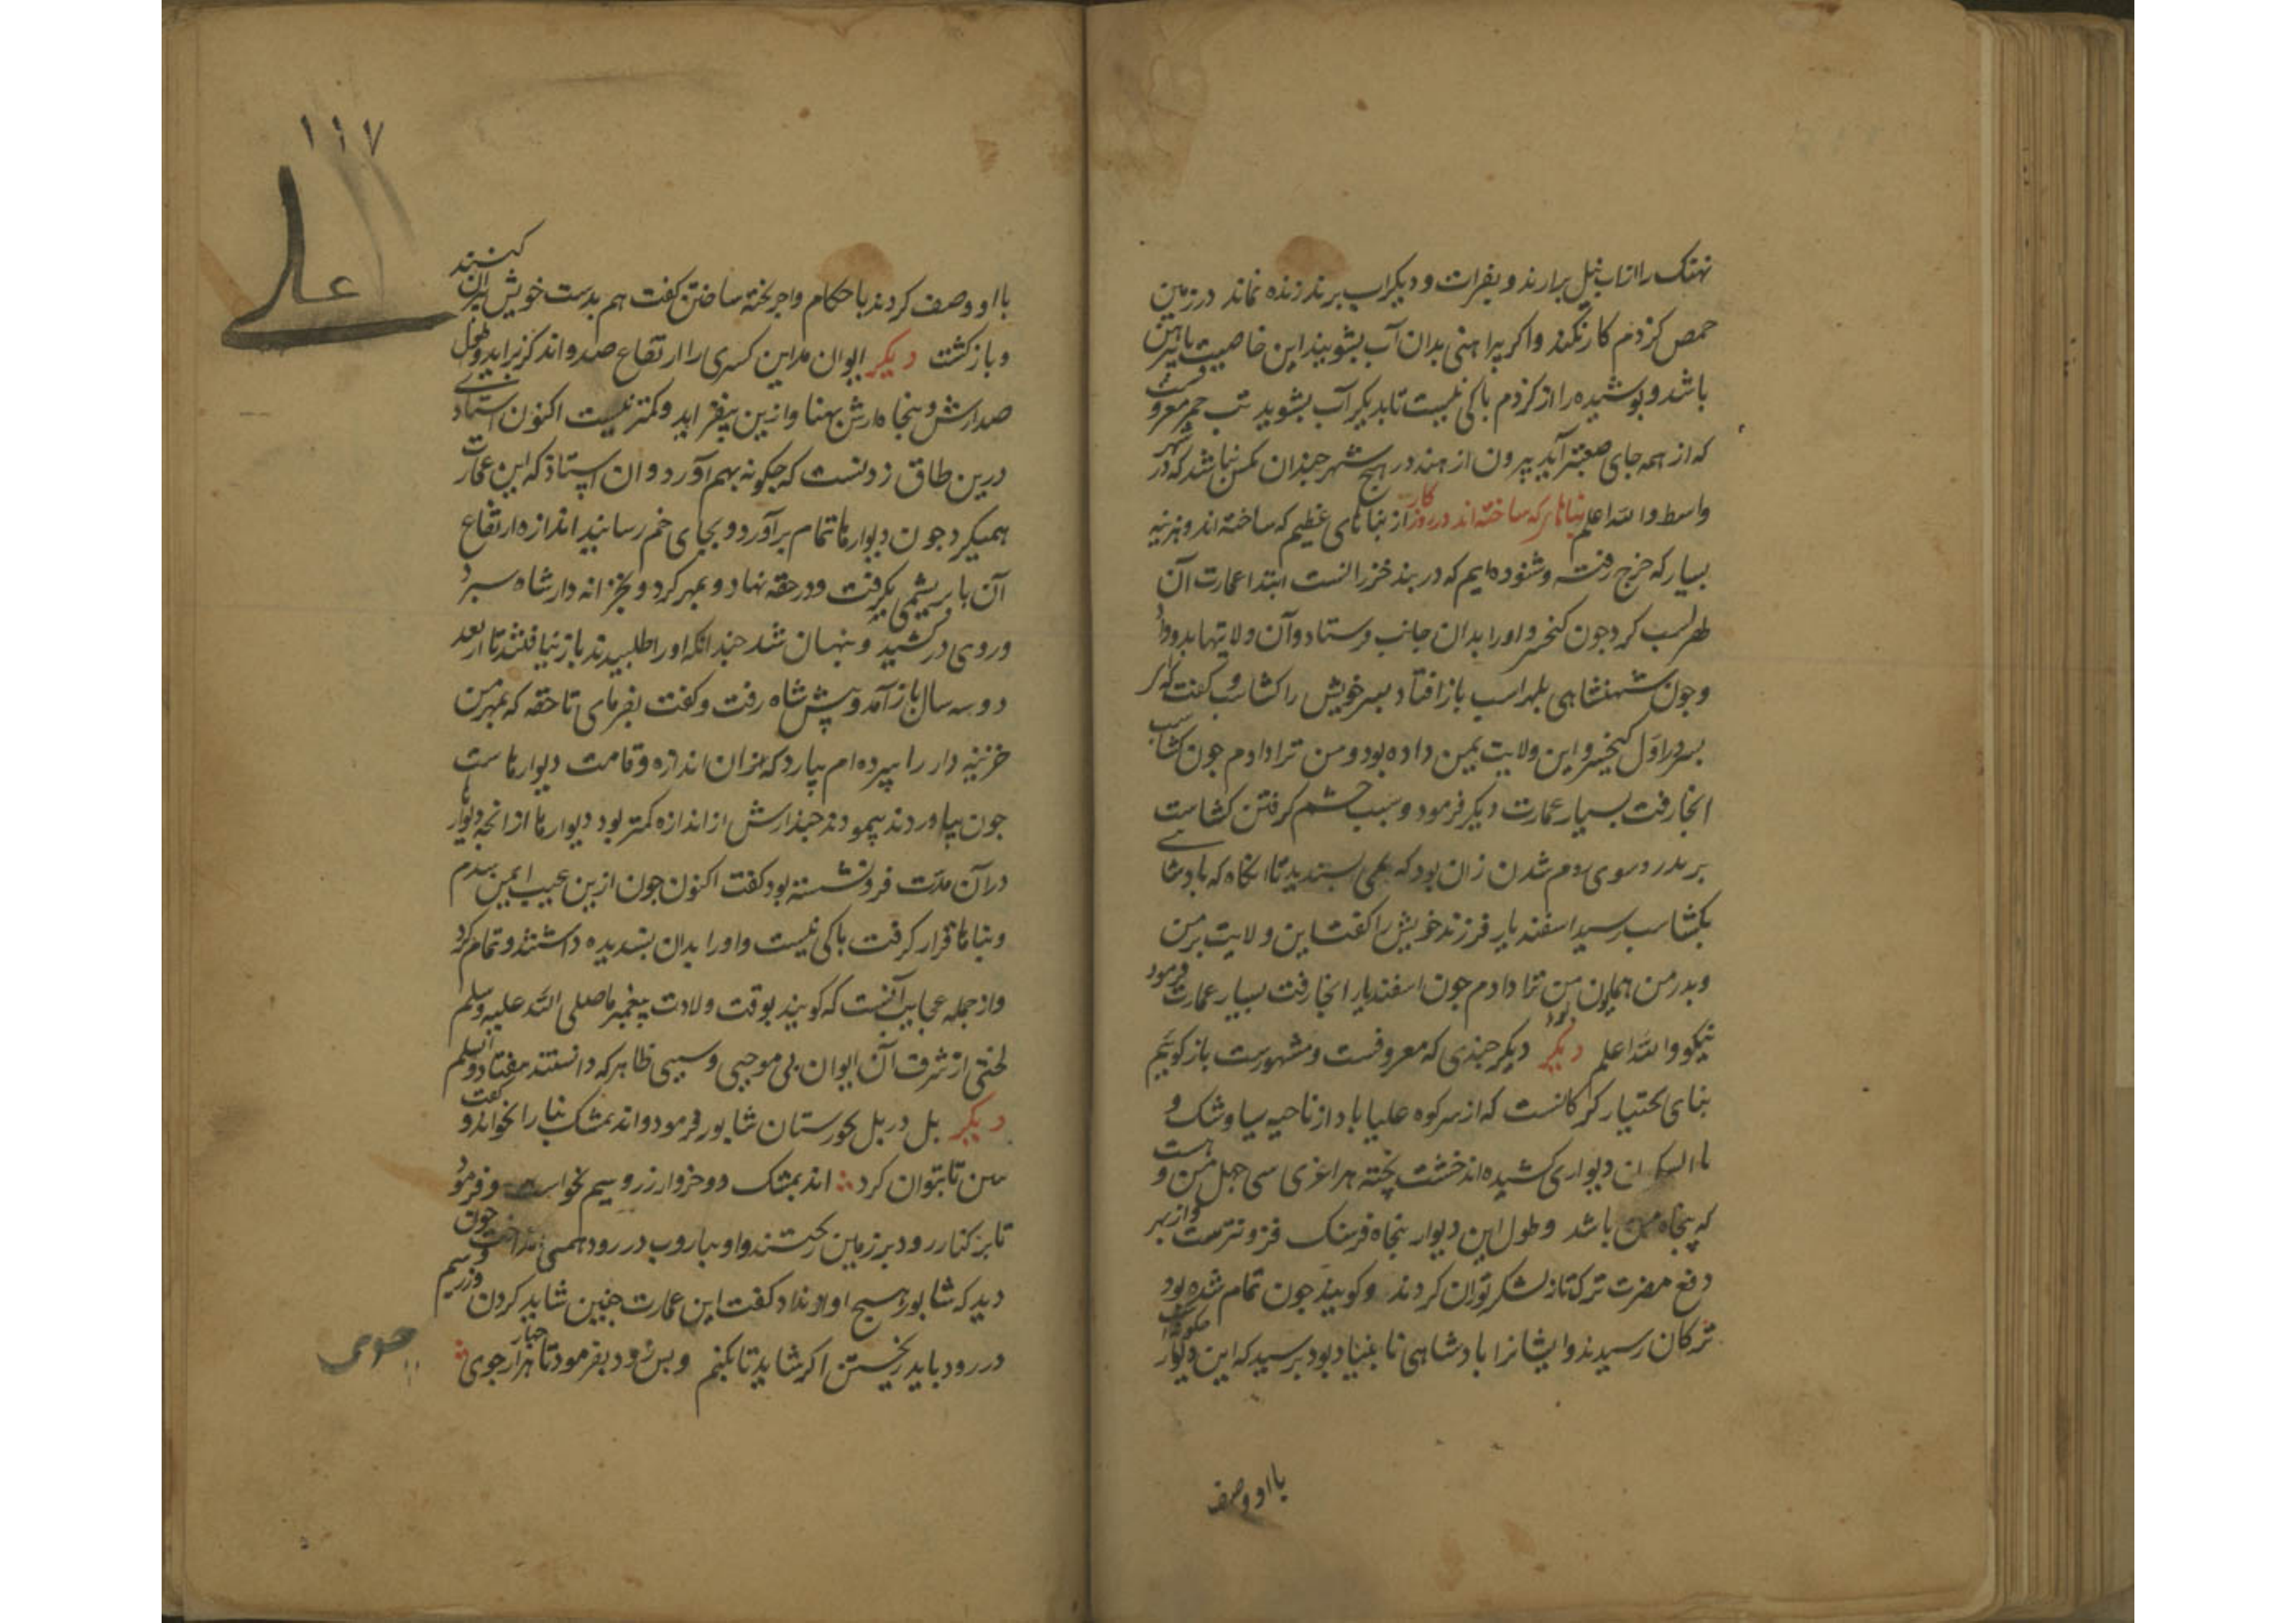 نهنک را از اب نیل برارند و بفرات و دیکر اب برند زنده نماند در زمین
حمص کزدم کار نکند و اکر پیراهنی بدان آب بشویند این خاصیت با پیراهن
باشد و پوشیده را از کزدم باکی نیست تا بدیکر آب بشوید تب خیبر معروفست
که از همه جای صعبتر آید بیرون از هند در هیچ شهر جندان مکس نباشد که در شهر
واسط والله اعلم بناها که ساخته اند در روزکار از بناهای عظیم که ساخته اند و هزینه
بسیار که خرج رفته و شنوده ایم که در بند خزرانست ابتدا عمارت آن
لهراسب کرد جون کیخسرو اورا بدان جانب فرستاد و آن ولایتها بدو داد
و جون شهنشاهی بلهراسب باز افتاد بسر خویش را کشتاسب کفت که کر
بسر اول کیخسرو این ولایت بمن داده بود و من ترا دادم جون کشتاسب
انجا رفت بسیار عمارت دیکر فرمود و سبب خشم کرفتن کشتاسب
بر بدر و سوی روم شدن زان بود که نمی بسندید تا انکاه که بادشاهی
بکشتاسب رسید اسفندیار فرزند خویش را کفت این ولایت بر من
و بدر من همایون من ترا دادم جون اسفندیار انجا رفت بسیار عمارت فرمود
نیکو والله اعلم دیکر دیکر جندی که معروفست و مشهورست باز کوییم
بنای بختیار کرکانست که از سر کوه علیاباد از ناحیه سیاوشک و
دیواری کشیده اند خشت پخته هر اغزی سی جهل من و هست
که پنجاه من باشد و طول این دیوار بنجاه فرسنک فزونترست و از بهر
دفع مضرت ترکتاز لشکر توران کردند و کویند جون تمام شده بود
ترکان رسیدند و ایشانرا بادشاهی نابینا بود برسید که این دیوار حکونه
با او وصف
۱۱۷
علی
با او وصف کردند باحکام و اجر پخته ساختن کفت هم بدست خویش ویران کنند
و باز کشت دیکر ایوان مداین کسری را ارتفاع صد و اند کز براید و طول
صد ارش و پنجاه ارش بهنا و ازین بیفزاید و کمتر نیست اکنون استادی
درین طاق زدنست که جکونه بهم آورد و ان استاد که این عمارت
همیکرد جون دیوارها تمام برآورد و بجای خم رسانید اندازه ارتفاع
آن بابریشمی بکرفت و در حقه نهاد و بمهر کرد و بخزانه دار شاه سبرد
و روی در کشید و بنهان شد جندانکه اورا طلبیدند باز نیافتند تا از بعد
دو سه سال باز آمد و پیش شاه رفت و کفت بفرمای تا حقه که بمهر من
خزینه دار را سپرده ام بیارد که دران اندازه و قامت دیوارهاست
جون بیاوردند بپیمودند جند ارش از اندازه کمتر بود دیوارها از انجه دیوارها
در آن مدت فرو نشسته بود کفت اکنون جون ازین عیب ایمن شدم
و بناها قرار کرفت باکی نیست و اورا بدان بسندیده داشتند و تمام کرد
و از جمله عجایب آنست که کویند بوقت ولادت پیغمبر ما صلی الله علیه وسلم
لختی از شرف آن ایوان بی موجبی و سببی ظاهر که دانستند بیفتاد و الله اعلم
دیکر بل در بل خورستان شابور فرمود و اندیمشک بنا را بخواند و کفت
تا بتوان کرد اندیمشک دو خروار زر و سیم بخواست و فرمود
تا بر کنار رود بر زمین ریختند و او بپاروب در رود همی انداخت جون
دید که شابور هیج اواز نداد کفت این عمارت جنین شاید کردن و زر و سیم
در رود باید ریختن اکر شاید تا بکنم و بس زود بفرمود تا هزار جوی
جوی